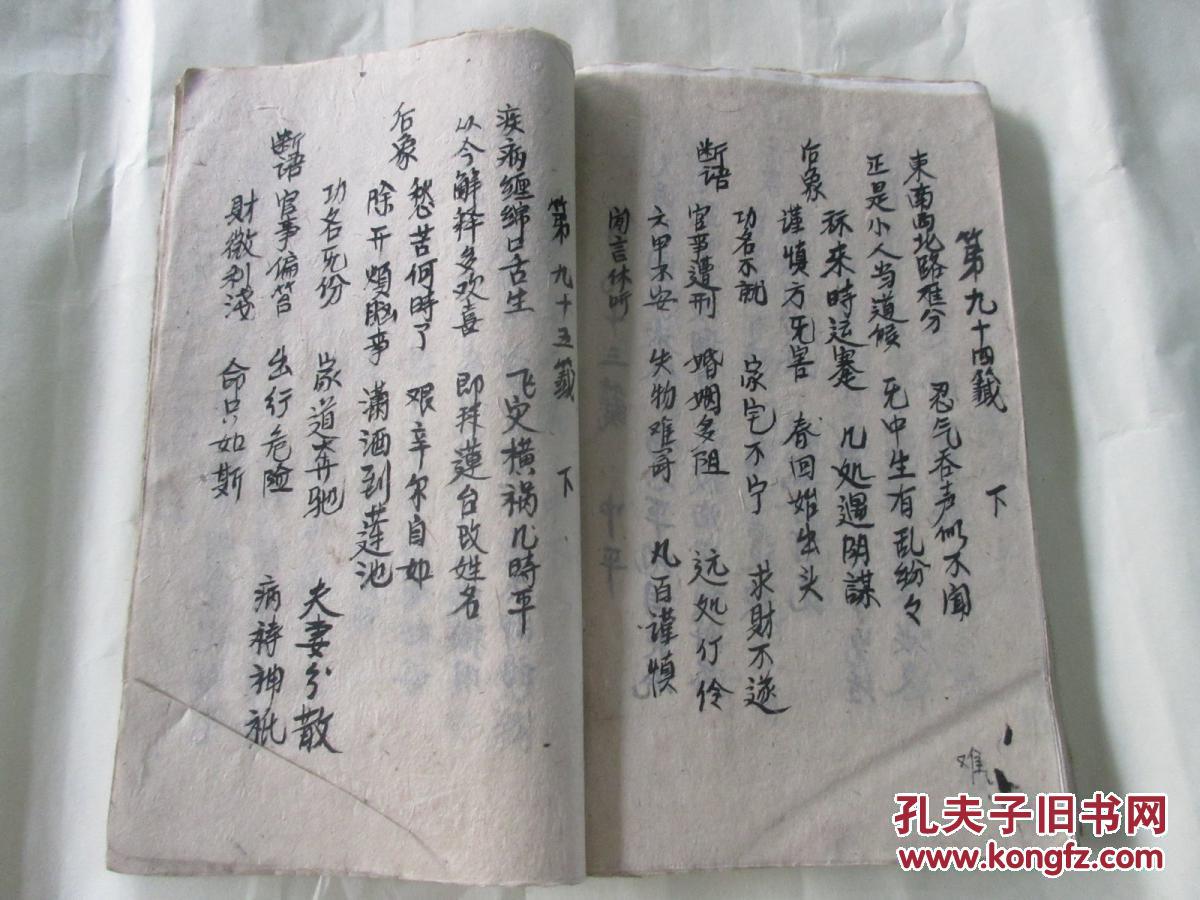 第九十四籤 下
東南西北路难分 忍气吞声似不闻
正是小人当道候 旡中生有乱纷々
后象 称来時运蹇 几处遇阴謀
谨慎方旡害 春回始出头
断语 功名不就 家宅不宁 求財不遂
官事遭刑 婚姻多阻 远处行伶
六甲不安 失物难 凡百谨慎
闻言休听
难
第九十五籤 下
疾病缠綿口舌生 飞灾横祸几時平
从今解释多欢喜 即拜蓮台改姓名
后象 愁苦何時了 艰辛尔自如
除开煩恼事 潇洒到莲池
断语 功名旡份 家道奔驰 夫妻分散
官事偏笞 出行危险 病祷神祇
財微利浅 命只如斯
孔夫子旧书网
www.kongfz.com